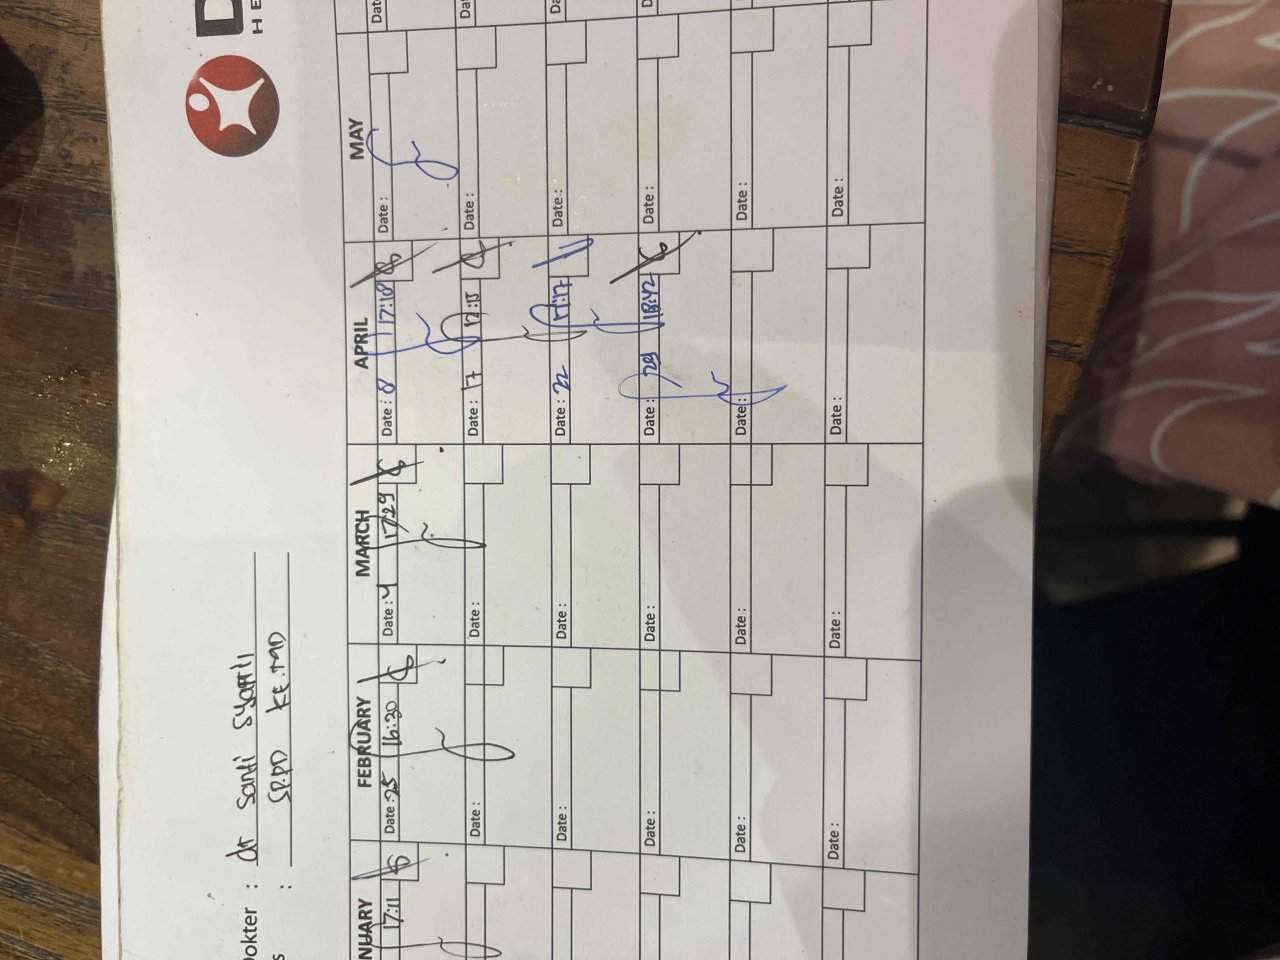 D
HE
Dokter : dr Santi Syafril
s : SP.PD KE.MD
NUARY FEBRUARY MARCH APRIL MAY
17:11 Date: 25 16:30 Date: 4 17:29 Date: 8 17:18 Date: Dat
Date: Date: Date: 17 17:15 Date: Dat
Date: Date: Date: 22 17:17 11 Date: Da
Date: Date: Date: 29 18:42 Date: D
Date: Date: Date: Date:
Date: Date: Date: Date: